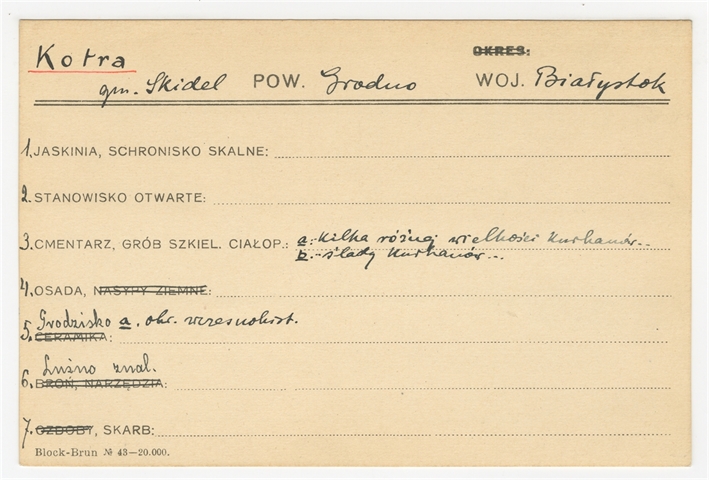 Kotra
OKRES:
gm. Skidel POW. Grodno WOJ. Białystok
1. JASKINIA, SCHRONISKO SKALNE:
2. STANOWISKO OTWARTE:
3. CMENTARZ, GRÓB SZKIEL. CIAŁOP.: a.- Kilka różnej wielkości kurhanów..
b.- ślady kurhanów...
4. OSADA, NASYPY ZIEMNE:
Grodzisko a. okr. wczesnohist.
5. CERAMIKA:
Luźno znal.
6. BROŃ, NARZĘDZIA:
7. OZDOBY, SKARB:
Block-Brun № 43—20.000.